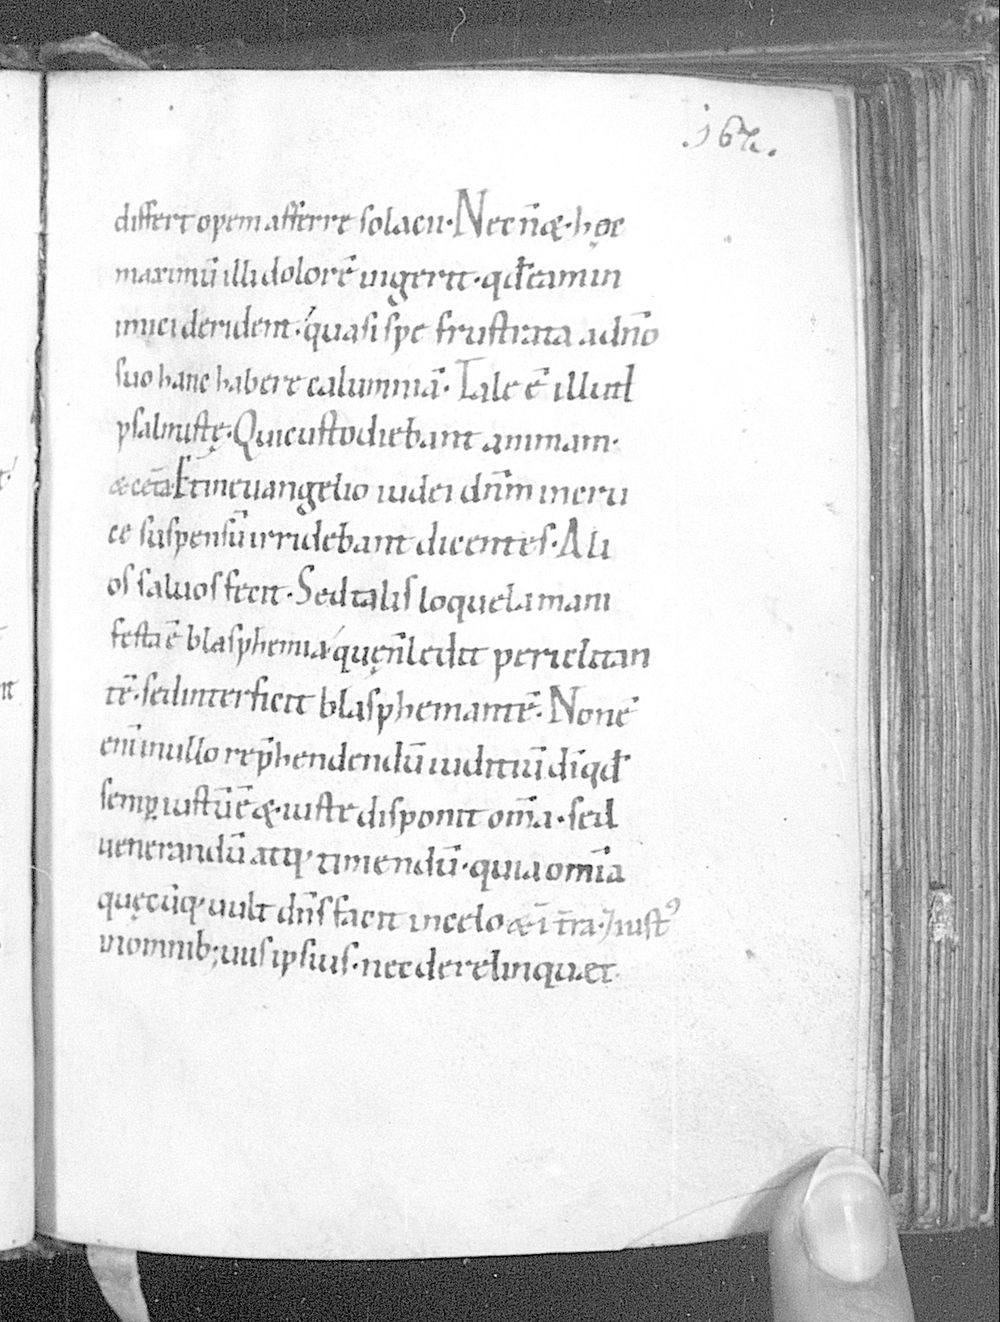 .167.
differt opem afferre solacii· Nec n̄ æ· hęc
maximū illi dolorē ingerit· qđ eam in
imici derident· quasi spe frustrata a dn̄o
suo hanc habere calumniā· Tale ē illud
psalmistę· Qui custodiebant animam·
æ cetā Et in euangelio iudei dn̄m in cru
ce suspensū irridebant dicentes· Ali
os saluos fecit· Sed talis loquela mani
festa ē blasphemia quę n̄ ledit periclitan
tē· sed interficit blasphemantē· Non ē
enī in ullo rep̄hendendū iuditiū dī qđ
semp̲ iustū ē æ· iuste disponit om̄a· sed
uenerandū atq; timendū· quia omīa
quęcūq; uult dn̄s facit in celo æ ī t̄ra· Iustꝰ
in omnib; uiis ipsius· nec derelinquet